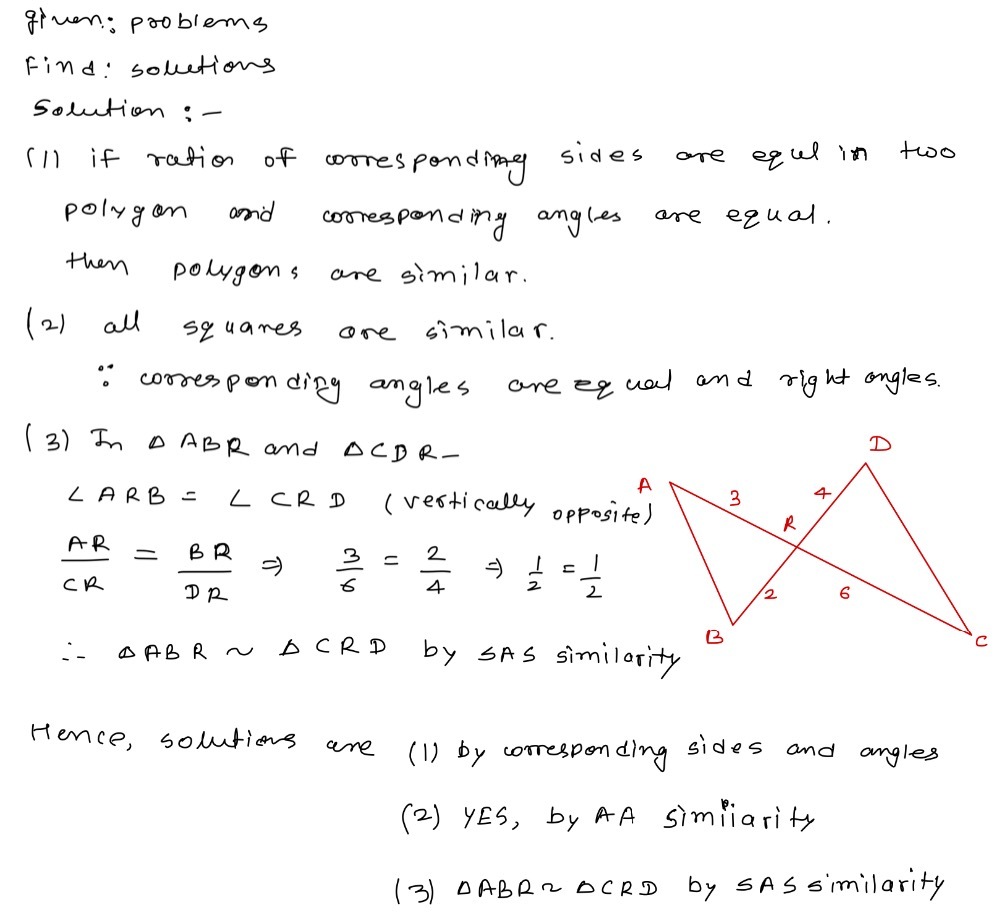 given: problems
Find: solutions
Solution :-
(1) if ratios of corresponding sides are equl in two
polygon and corresponding angles are equal.
then polygons are similar.
(2) all squares are similar.
∵ corresponding angles are equal and right angles.
(3) In △ABR and △CDR-
∠ARB = ∠CRD (vertically opposite)
AR/CR = BR/DR ⇒ 3/6 = 2/4 ⇒ 1/2 = 1/2
∴ △ABR ~ △CRD by SAS similarity
A
3
R
4
D
B
2
6
C
Hence, solutions are (1) by corresponding sides and angles
(2) YES, by AA similarity
(3) △ABR ~ △CRD by SAS similarity